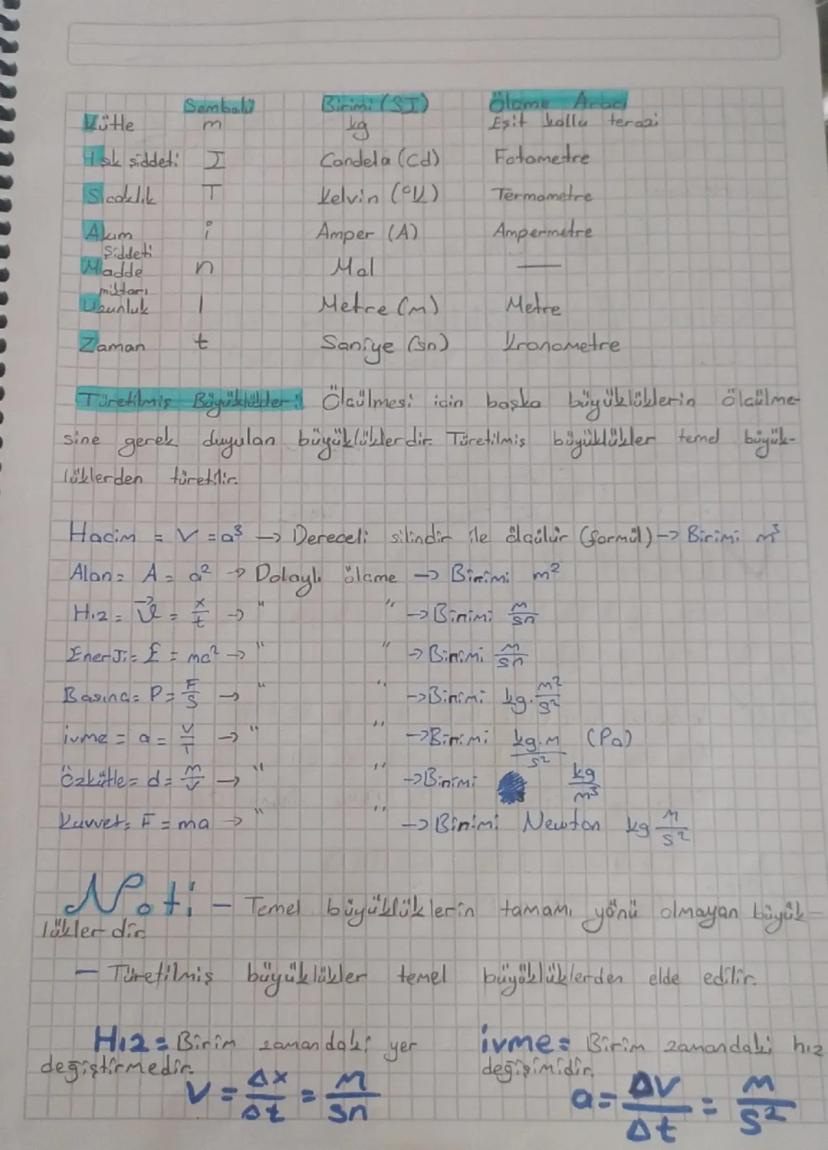 Sembolü Birimi (SI) Ölçme Aracı
Kütle m kg Eşit kollu terazi
Işık şiddeti I Candela (Cd) Fotometre
Sıcaklık T Kelvin (°K) Termometre
Akım Şiddeti i Amper (A) Ampermetre
Madde miktarı n Mol —
Uzunluk l Metre (m) Metre
Zaman t Saniye (sn) Kronometre
Türetilmiş Büyüklükler: Ölçülmesi için başka büyüklüklerin ölçülme-
sine gerek duyulan büyüklüklerdir. Türetilmiş büyüklükler temel büyük-
lüklerden türetilir.
Hacim = V = a³ → Dereceli silindir ile ölçülür (formül) → Birimi m³
Alan = A = a² → Dolaylı ölçme → Birimi m²
Hız = V⃗ = x/t → " " → Birimi m/sn
Enerji = E = mc² → " " → Birimi m/sn
Basınç = P = F/S → " " → Birimi kg·m²/s²
ivme = a = V/T → " " → Birimi kg.m/s² (Pa)
Özkütle = d = m/v → " " → Birimi kg/m³
Kuvvet = F = ma → " " → Birimi Newton kg m/s²
Not: – Temel büyüklüklerin tamamı yönü olmayan büyük-
lüklerdir.
– Türetilmiş büyüklükler temel büyüklüklerden elde edilir.
Hız = Birim zamandaki yer
değiştirmedir.
V = Δx/Δt = m/sn
ivme = Birim zamandaki hız
değişimidir.
a = ΔV/Δt = m/s²